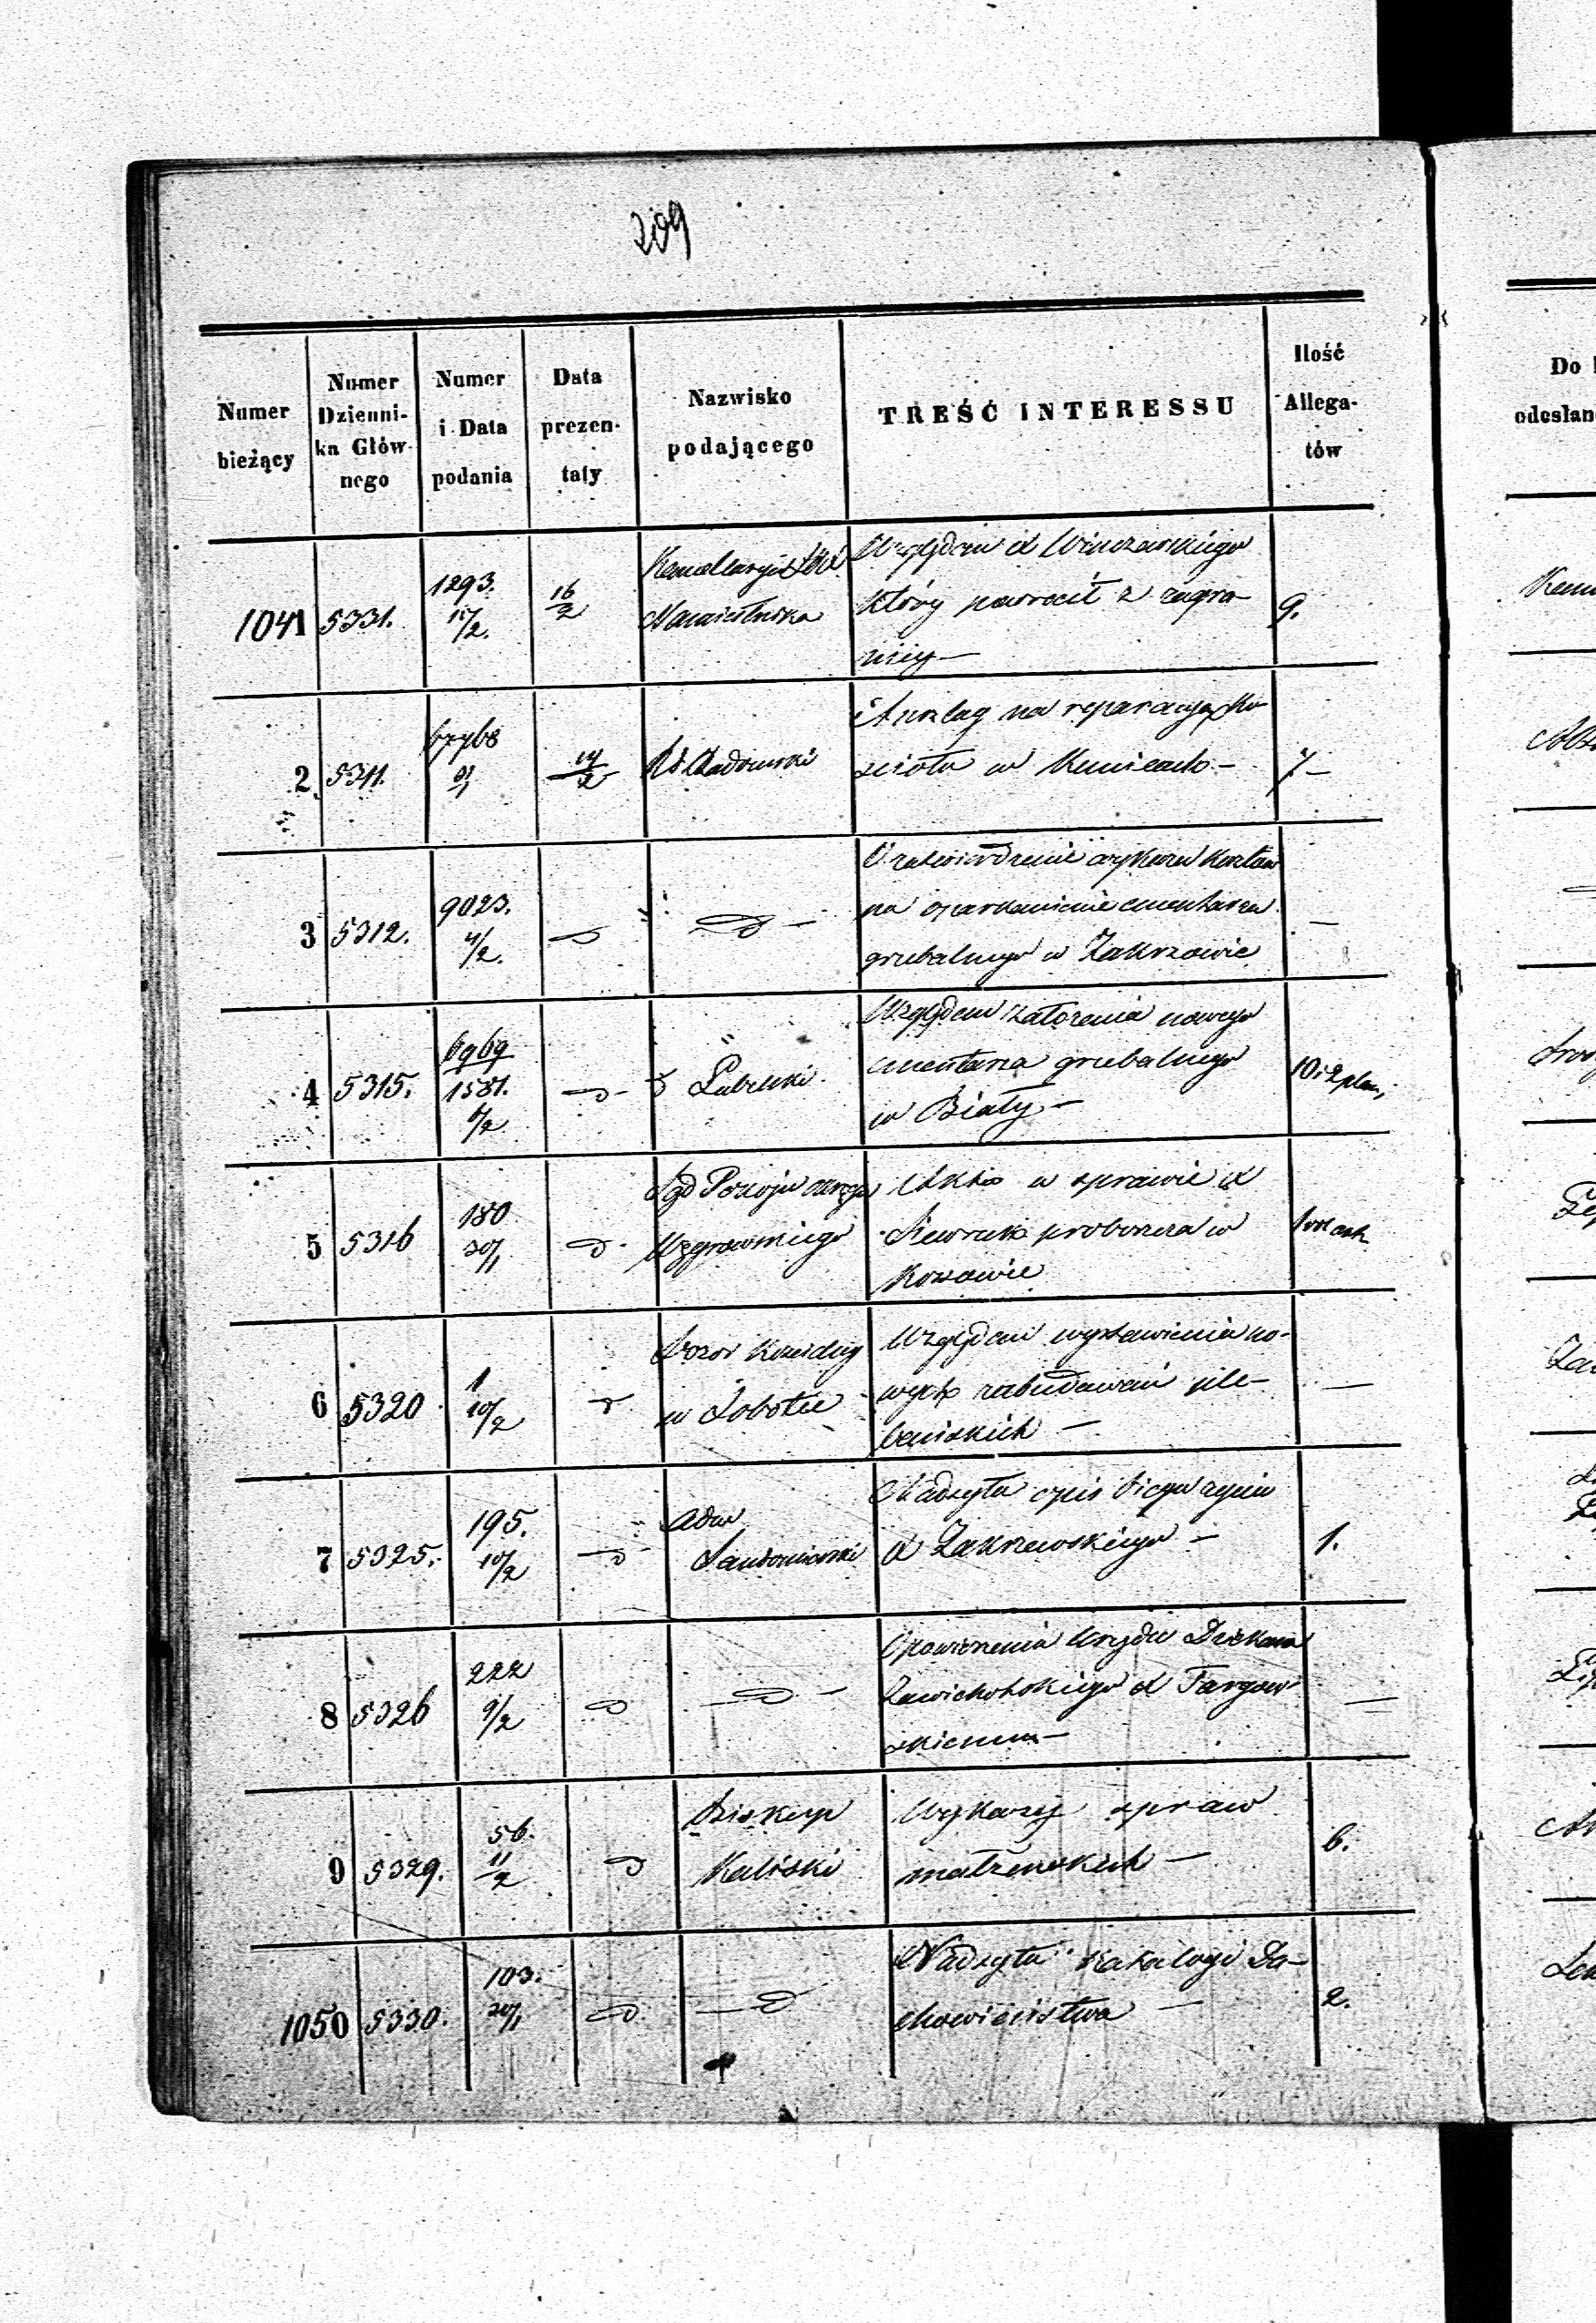 209
Numer bieżący
Numer Dzienni-
ka Głów-
nego
Numer i Data podania
Data prezen-
taty
Nazwisko podającego
TREŚĆ INTERESSU
Ilość Allega-
tów
Do
odesłan
1041 5331. 1293. 16/2
Kancellaryi
Namiestnika
Względem X
który powrócił z zagra-
nicy —
9.
2 5311. 14/2
Rd Radomski
Anszlag na reparacyą Ko-
ścioła w Kunicach —
7 —
3 5312. 9023. 4/2.
O zatwierdzenie wykazu kosztów
na oparkanienie cmentarza
grzebalnego w Zakrzowie
—
4 5315. 6969 1581. 6/2
Lubelski
Względem założenia nowego
cmentarza grzebalnego
w Biały —
10 i 2 plan,
5 5316 180 20/1
Sąd Pokoju okręgu
Węgrowskiego
Akta w sprawie X
proboszcza w
Kossowie
6 5320 1 10/2
Dozór Kościelny
w Sobocie
Względem wystawienia no-
wych zabudowań ple-
bańskich —
—
7 5325. 195. 10/2
Adm
Sandomierski
Nadsyła opis biegu życia
X Zakrzewskiego —
1.
8 5326 222 9/2
O powierzeniu Urzędu Dziekana
Zawichostskiego X Targow-
skiemu —
—
9 5329. 56. 11/2
Biskup
Kaliski
Wykazy spraw
małżeńskich —
6.
1050 5330. 103. 20/1
Nadsyła katalogi Du-
chowieństwa —
2.